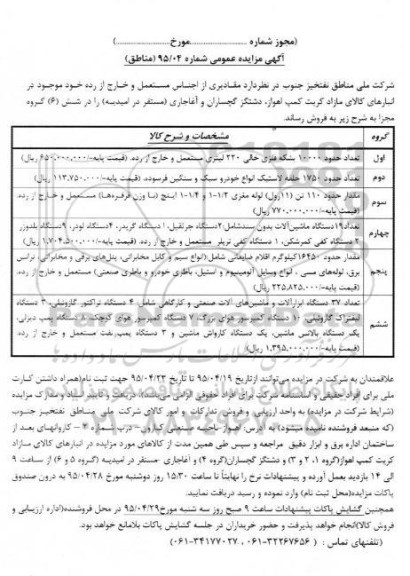 (مجوز شماره ........................ مورخ ........................)
آگهی مزایده عمومی شماره ۹۵/۰۴ (مناطق)
شرکت ملی مناطق نفتخیز جنوب در نظردارد مقادیری از اجناس مستعمل و خارج از رده خود موجود در
انبارهای کالای مازاد کریت کمپ اهواز، دشتگز گچساران و آغاجاری (مستقر در امیدیه) را در شش (۶) گروه
مجزا به شرح زیر به فروش رساند.
گروه مشخصات و شرح کالا
اول تعداد حدود ۱۰۰۰۰ بشکه فلزی خالی ۲۲۰ لیتری مستعمل و خارج از رده. (قیمت پایه-/۴۵۰،۰۰۰،۰۰۰ ریال)
دوم تعداد حدود ۱۷۵۰ حلقه لاستیک انواع خودرو سبک و سنگین فرسوده. (قیمت پایه-/۱۱۳،۷۵۰،۰۰۰ ریال)
سوم مقدار حدود ۱۱۰ تن (۱۱رول) لوله مغزی ۱-۱/۴ و ۱-۱/۴ اینچ (با وزن قرقره‌ها) مستعمل و خارج از رده.
(قیمت پایه-/۷۷۰،۰۰۰،۰۰۰ ریال)
چهارم تعداد۱۹دستگاه ماشین‌آلات بدون سندشامل:۲دستگاه جرثقیل، ۱ دستگاه گریدر، ۴دستگاه لودر، ۹دستگاه بلدوزر
۲ دستگاه کفی کمرشکن، ۱ دستگاه کفی تریلر مستعمل و خارج از رده. (قیمت پایه-/۱،۷۰۴،۵۰۰،۰۰۰ ریال)
پنجم مقدار حدود ۱۶۴۵۰کیلوگرم اقلام ضایعاتی شامل:(انواع سیم و کابل مخابراتی، پنل‌های برقی و مخابراتی، ترانس
برق، لوله‌های مسی ، انواع وسایل آلومینیوم و استیل، باطری خودرو و باطری صنعتی) مستعمل و خارج از رده.
(قیمت پایه-/۲۲۵،۸۲۵،۰۰۰ ریال)
ششم تعداد ۳۷ دستگاه ابزارآلات و ماشین‌های آلات صنعتی و کارگاهی شامل: ۴ دستگاه تراکتور گازوئیلی، ۳ دستگاه
لیفتراک گازوئیلی، ۱۰ دستگاه کمپرسور هوای بزرگ، ۷ دستگاه کمپرسور هوای کوچک، ۸ دستگاه دیزلی،
یک دستگاه بالانس ماشین، یک دستگاه کارواش ماشین و ۳ دستگاه پمپ نفت مستعمل و خارج از رده.
(قیمت پایه-/۱،۳۹۵،۰۰۰،۰۰۰ ریال)
علاقمندان به شرکت در مزایده می‌توانند ازتاریخ ۹۵/۰۴/۱۹ تا تاریخ ۹۵/۰۴/۲۳ جهت ثبت نام(همراه داشتن کارت
ملی برای افراد حقیقی
(شرایط شرکت در مزایده) به واحد ارزیابی و فروش تدارکات و امور کالای شرکت ملی مناطق نفتخیز جنوب
(که منبعد فروشنده نامیده میشود) به آدرس: اهواز - ناحیه صنعتی کارون- درب شماره ۴ - کاروانهای بعد از
ساختمان اداره برق و ابزار دقیق مراجعه و سپس طی همین مدت از کالاهای مورد مزایده در انبارهای کالای مازاد
کریت کمپ اهواز(گروه ۱، ۲ و ۳) و دشتگز گچساران(گروه ۴) و آغاجاری -مستقر در امیدیه (گروه ۵ و ۶) از ساعت ۹
الی ۱۴ بازدید بعمل آورده و پیشنهادات نرخ را نهایتاً تا ساعت ۱۵:۳۰ روز دوشنبه مورخ ۹۵/۰۴/۲۸ به درون صندوق
پاکات مزایده(محل ثبت نام) وارد نموده و رسید دریافت نمایید.
همچنین گشایش پاکات پیشنهادات ساعت ۹ صبح روز سه شنبه مورخ۹۵/۰۴/۲۹در محل فروشنده(اداره ارزیابی و
فروش کالا)انجام خواهد پذیرفت و حضور خریداران در جلسه گشایش پاکات بلامانع خواهد بود.
(تلفنهای تماس : ۳۲۲۶۷۶۵۶-۰۶۱ ، ۳۴۱۷۷۰۲۷-۰۶۱)